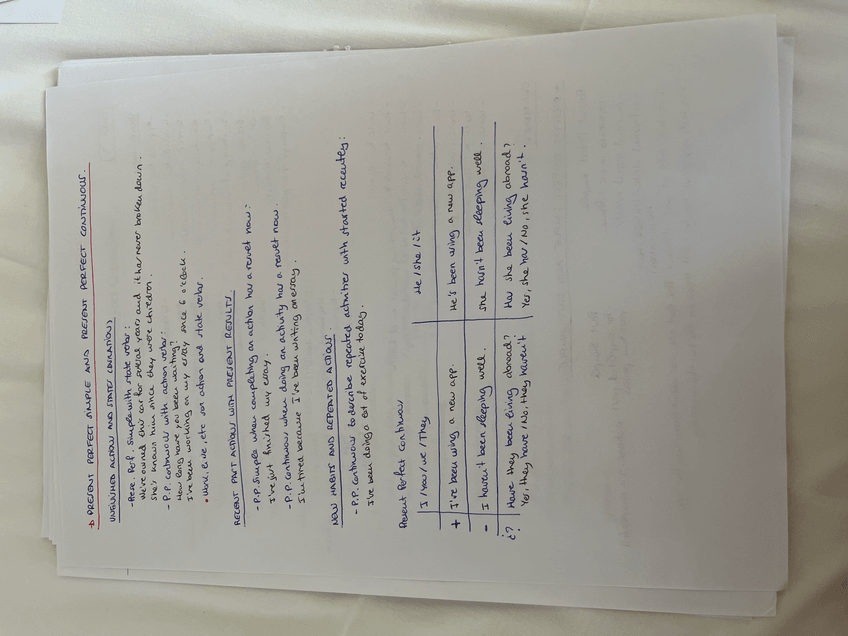 → PRESENT PERFECT SIMPLE AND PRESENT PERFECT CONTINUOUS.
UNFINISHED ACTIONS AND STATES (DURATION)
- Pres. Perf. Simple with state verbs:
We've owned this car for several years and it has never broken down.
She's known him since they were children.
- P.P. continuous with action verbs:
How long have you been waiting?
I've been working on my essay since 6 o'clock.
• Work, live, etc son action and state verbs.
RECENT PAST ACTIONS WITH PRESENT RESULTS
- P.P. Simple when completing an action has a result now:
I've just finished my essay.
- P.P. continuous when doing an activity has a result now.
I'm tired because I've been writing an essay.
NEW HABITS AND REPEATED ACTIONS.
- P.P. continuous to describe repeated activities with started recently:
I've been doing a lot of exercise today.
Present Perfect Continuous
I/you/we/They He/she/it
+ I've been using a new app. He's been using a new app.
- I haven't been sleeping well. She hasn't been sleeping well.
¿? Have they been living abroad? Has she been living abroad?
Yes, they have/No, they haven't Yes, she has/No, she hasn't.